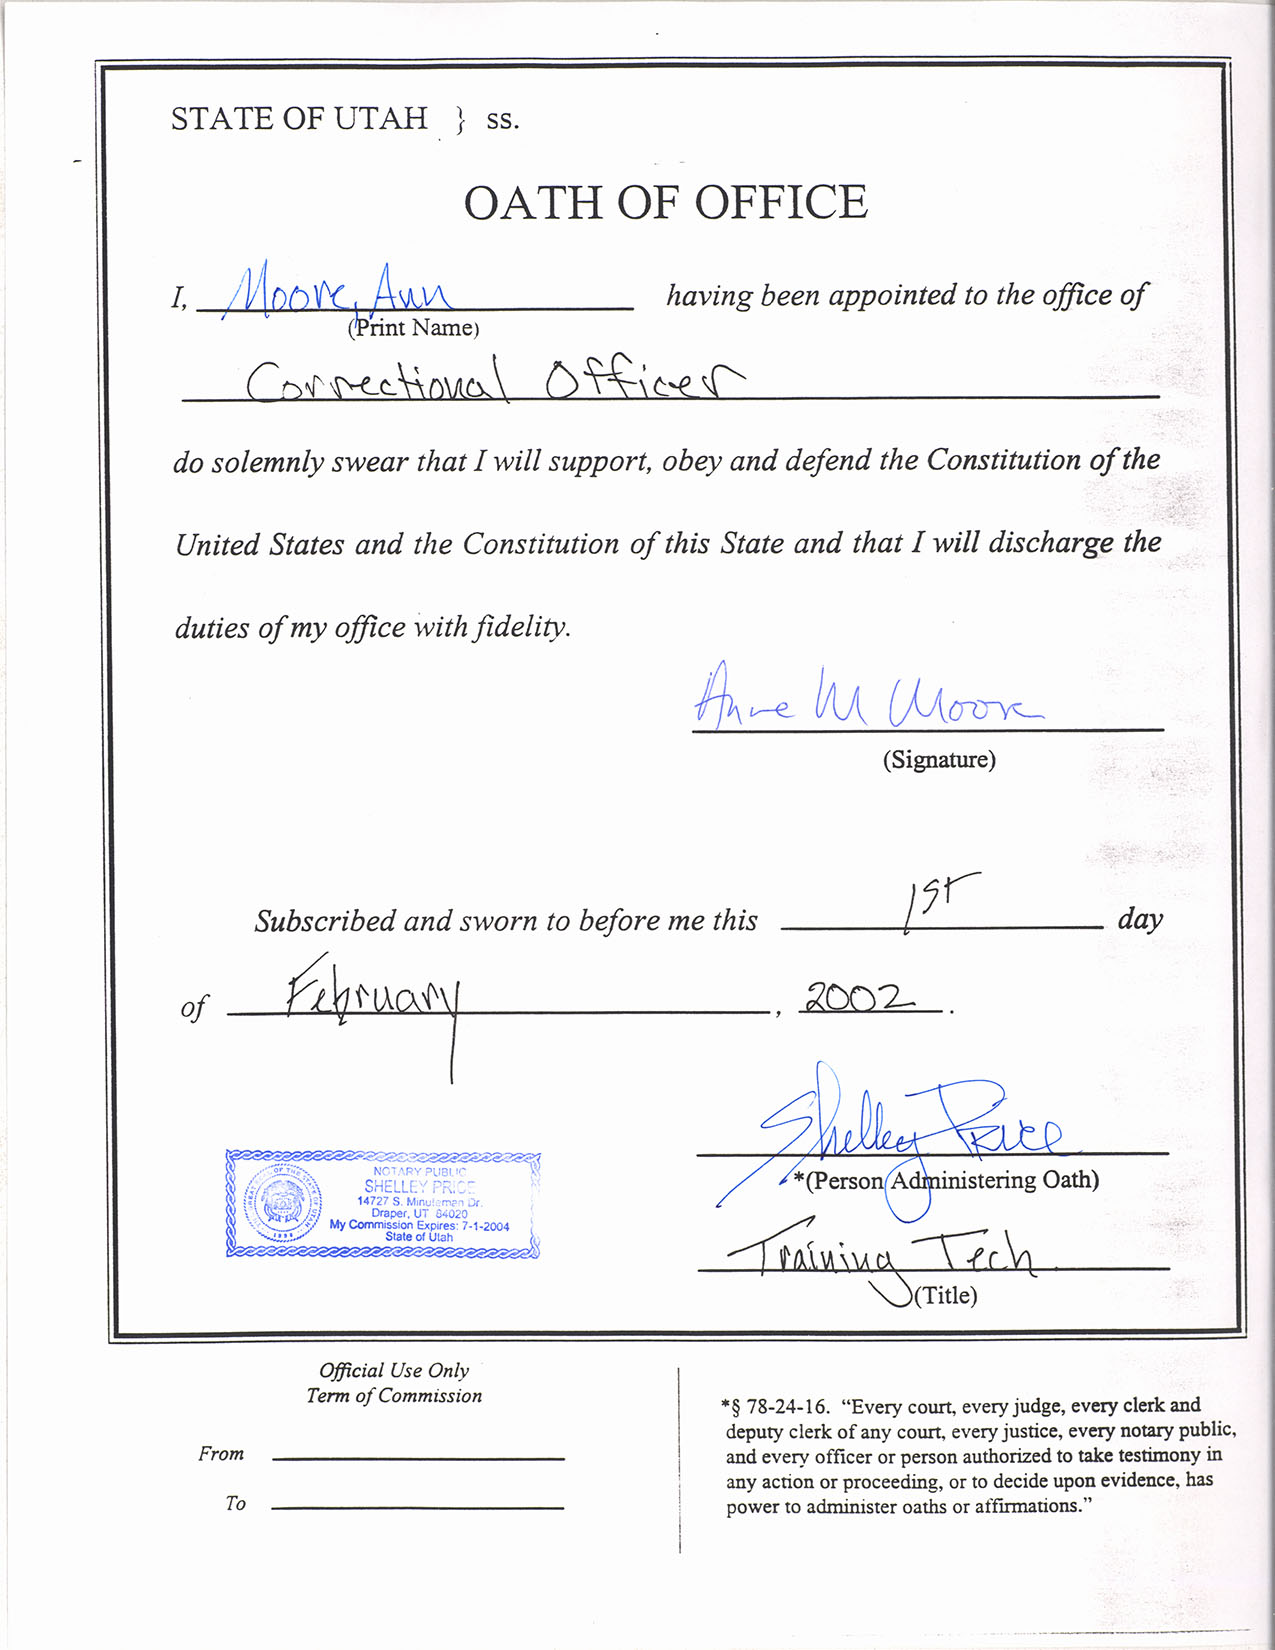 STATE OF UTAH } ss.
OATH OF OFFICE
I, Moore, Ann having been appointed to the office of
(Print Name)
Correctional Officer
do solemnly swear that I will support, obey and defend the Constitution of the
United States and the Constitution of this State and that I will discharge the
duties of my office with fidelity.
Anne M Moore
(Signature)
Subscribed and sworn to before me this 1st day
of February, 2002.
Shelley Price
*(Person Administering Oath)
NOTARY PUBLIC
SHELLEY PRICE
14727 S. Minuteman Dr.
Draper, UT 84020
My Commission Expires: 7-1-2004
State of Utah
Training Tech
(Title)
Official Use Only
Term of Commission
From
To
*§ 78-24-16. “Every court, every judge, every clerk and
deputy clerk of any court, every justice, every notary public,
and every officer or person authorized to take testimony in
any action or proceeding, or to decide upon evidence, has
power to administer oaths or affirmations.”